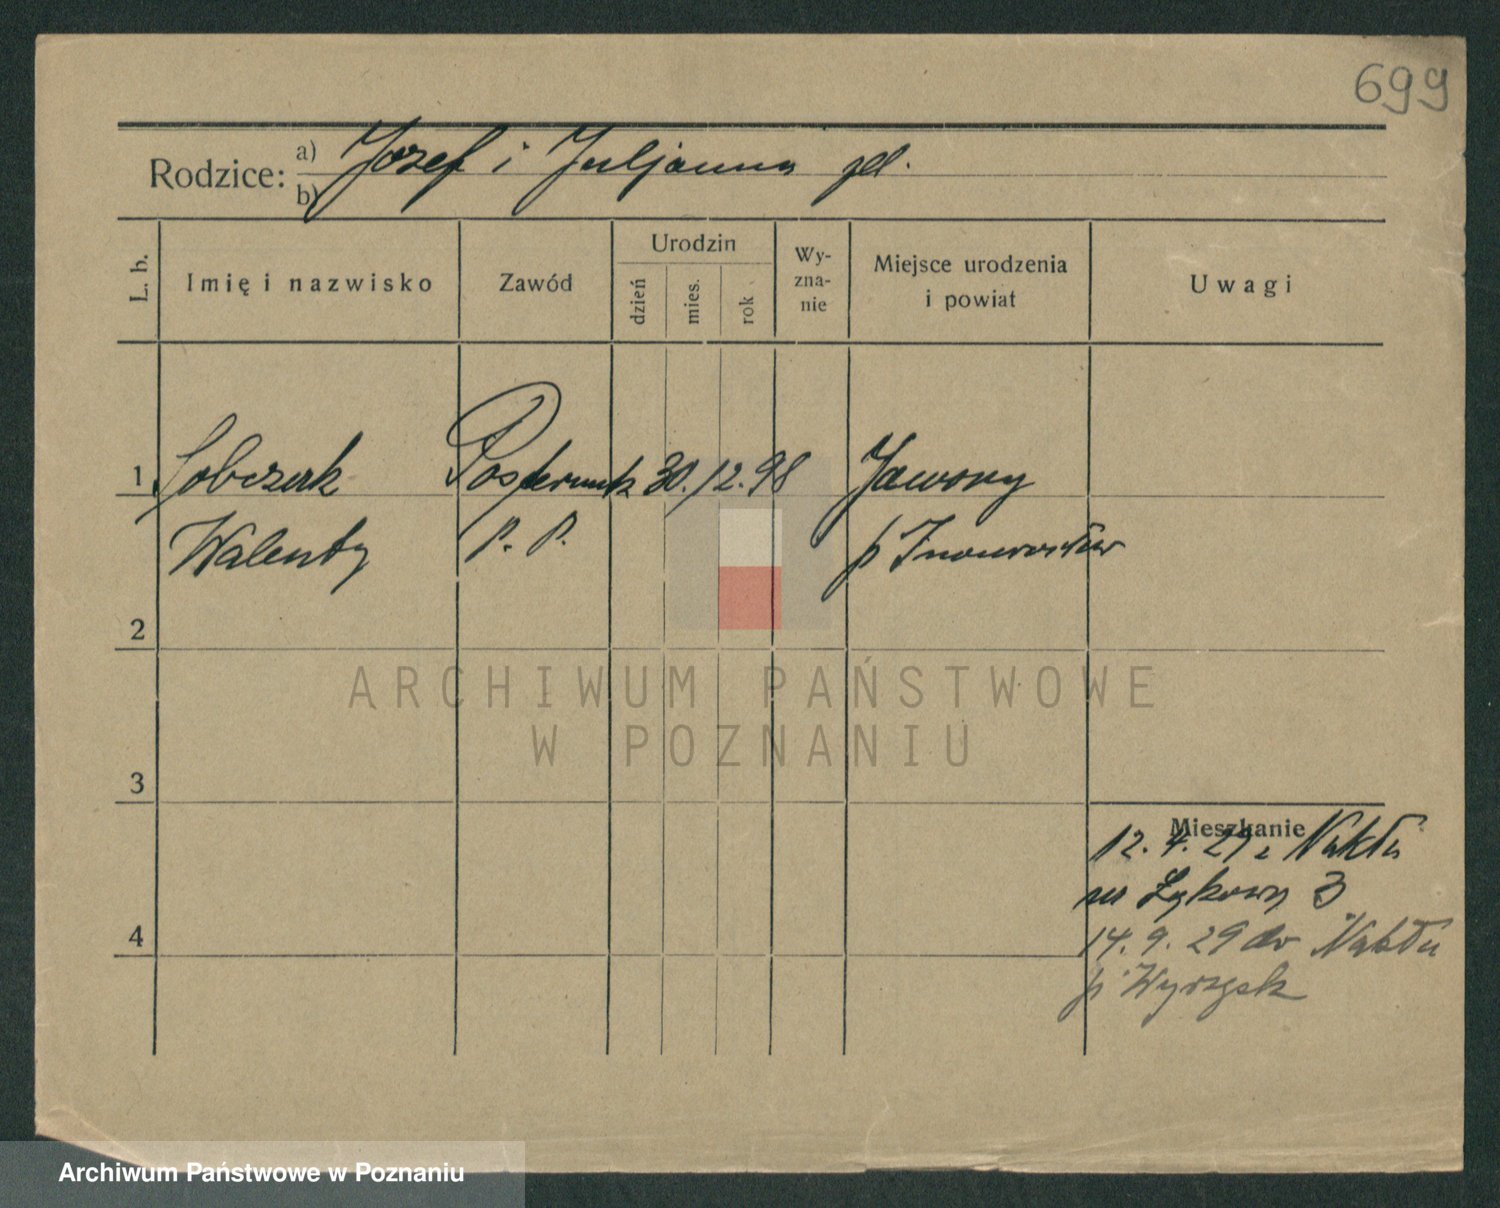 699
Rodzice: a) Jozef i Juljanna
b)
L. b. Imię i nazwisko Zawód Urodzin dzień mies. rok Wy-zna-nie Miejsce urodzenia i powiat Uwagi
1 Sobczak Posterunk 30. 12. 98 Jawory
Walenty P. P. p Inowrocław
2
ARCHIWUM PAŃSTWOWE
W POZNANIU
3
Mieszkanie
12. 4. 29 z Nakła
3
4
14. 9. 29 do Nakła
p Wyrzysk
Archiwum Państwowe w Poznaniu